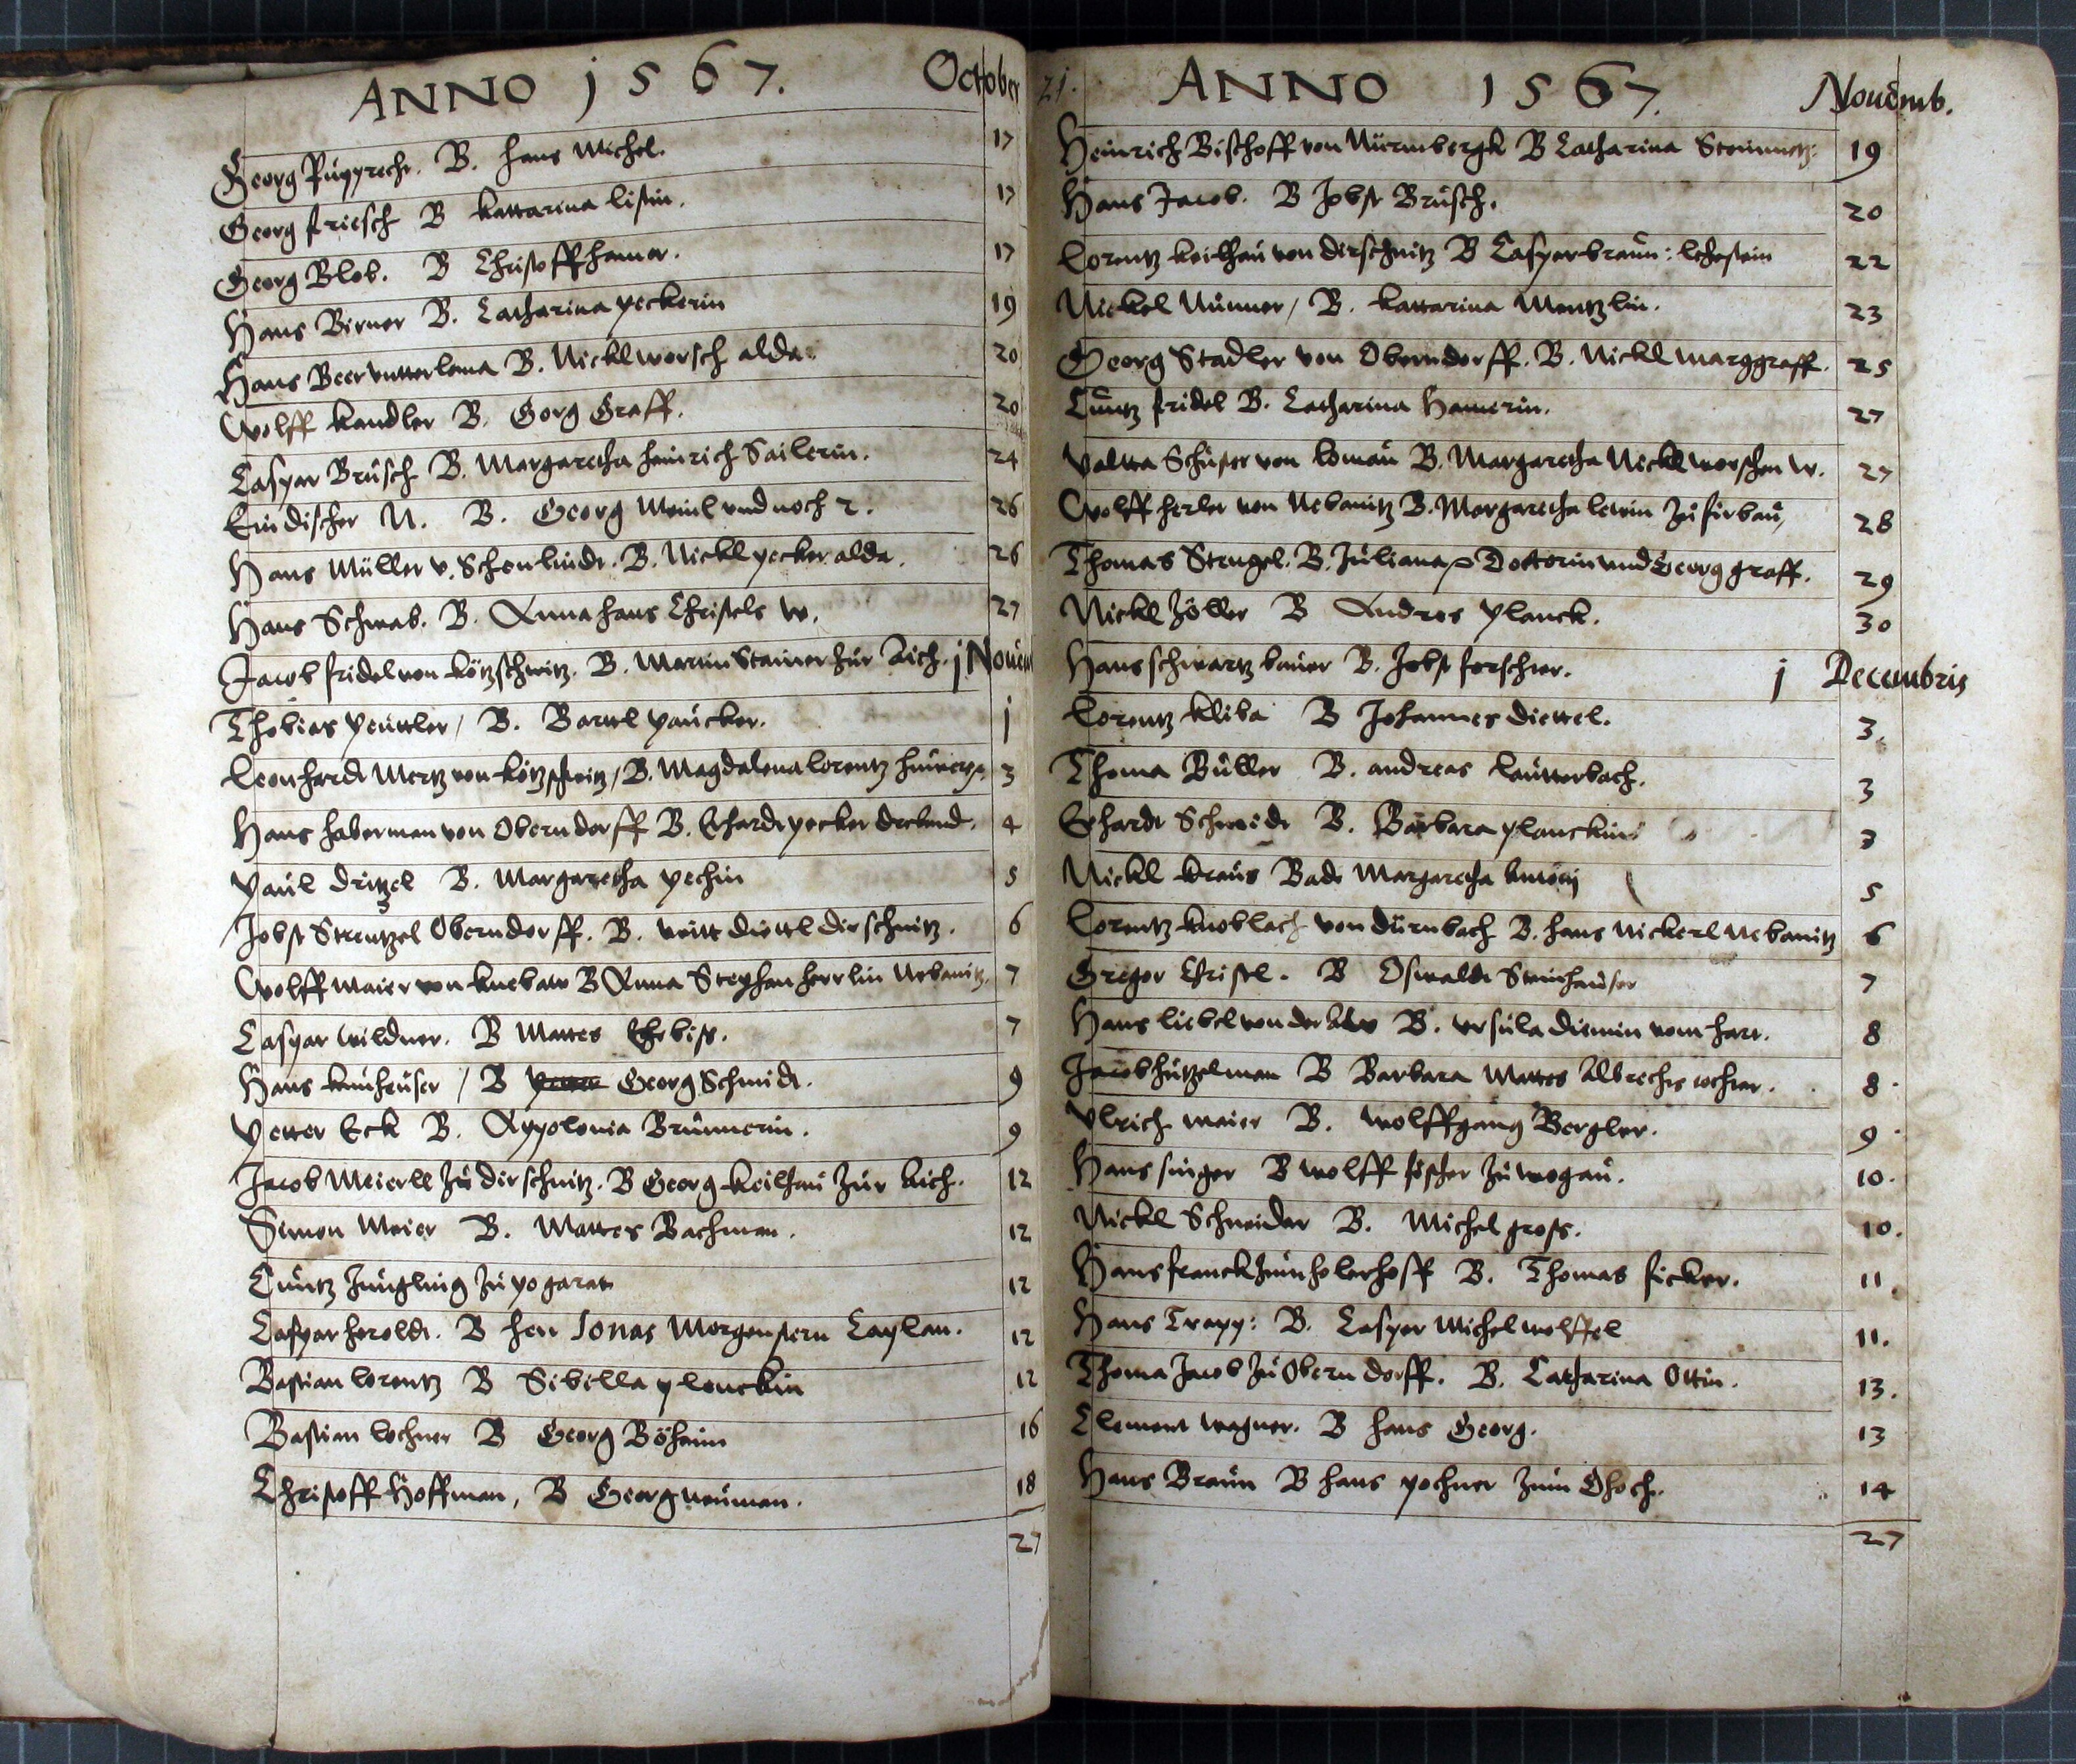 ANNO 1567. October
Georg Rupprecht. B. Hans Michel. 17
Georg friesch B Kattarina listin. 17
Georg Blob. B Christoff hamer. 17
Hans Birner B. Catharina peckerin 19
Hans Beer B. Nickl worsch alda. 20
Wolff Kandler B. Gorg Graff. 20
Caspar Brüsch B. Margaretha heinrich Sailerin. 24
Ein discher N. B. Georg Meinl vnd noch 2. 26
Hans Müller v. Schenlindt. B. Nickl pecker alda. 26
Hans Schwab. B. Anna hans Christels w. 27
Jacob fridel von kötzschwitz. B. Martin Stainer zur Aich. j Nouem
Thobias peuttler, B. Barttl paucker. j
Leonhardt Mertz von kötzschwitz, B. Magdalena lorentz 3
Hans haberman von Oberndorff B. Erhardt pecker 4
paul dritzel B. Margaretha pechin 5
Jobst Strentzel Oberndorff. B. veitt diettl dirschnitz. 6
Wolff Maier von knebaw B Anna Stephan herrlin Nebanitz. 7
Caspar wildner. B Mattes Ehrbiss. 7
Hans kunheuser / B Georg Schmidt. 9
petter Eck B. Appolonia Brunnerin. 9
Jacob Meierll zu dirschnitz. B Georg keilhau zur Aich. 12
Simon Meier B. Mattes Bachman. 12
Cuntz Jungling zu pograt 12
Caspar heroldt. B hern Jonas Morgenstern Caplan. 12
Bastian lorentz B Sibilla planckin 12
Bastian lochner B Georg Böhaim 16
Christoff Hoffman, B Georg neuman. 18
27
21. ANNO 1567. Nouemb.
Heinrich Bischoff von Nürmbergk B Catharina Steinmetz: 19
Hans Jacob. B Jobst Brusch. 20
Lorentz keilhau von dirschnitz B Caspar braun: 22
Nickel Nunner, B. Kattarina Mentzlin. 23
Georg Stadler von Oberndorff. B. Nickl Marggraff. 25
Cuntz fridel B. Catharina Hamerin. 27
Valtta Schuster von loman B. Margaretha Nickl worschen w. 27
Wolff herler von Nebanitz B. Margaretha 28
Thomas Strugel. B. Juliana Dottorin vnd Georg graff. 29
Nickl Zöller B Andres planck. 30
Hans schwartz bauer B. Jobst forschter. j Decembris
Lorentz kliba B Johannes diettel. 3.
Thoma Büller B. andreas lautterbach. 3
Erhardt Schmidt B. Barbara planckin 3
Nickl kraus Badt Margaretha 5
Lorentz knoblach von dürnbach B. hans Nickerl Nebanitz 6
Gregor Christel. B Oswaldt Steinhauser 7
Hans liebel von der B. vrsula diemin vom hart. 8
Jacob hützelman B Barbara Mattes Albrechts tochter. 8
Vlrich maier B. wolffgang Bergler. 9
Hans singer B wolff fischer zu wogau. 10.
Nickl Schneider B. Michel gross. 10.
Hans franck zum holerhoff B. Thomas ficker. 11.
Hans Trapp: B. Caspar Michel wolffel 11.
Thoma Jacob zu Oberndorff. B. Catharina Ottin. 13.
Clement wagner. B hans Georg. 13
Hans Braun B hans pochner zum 14
27